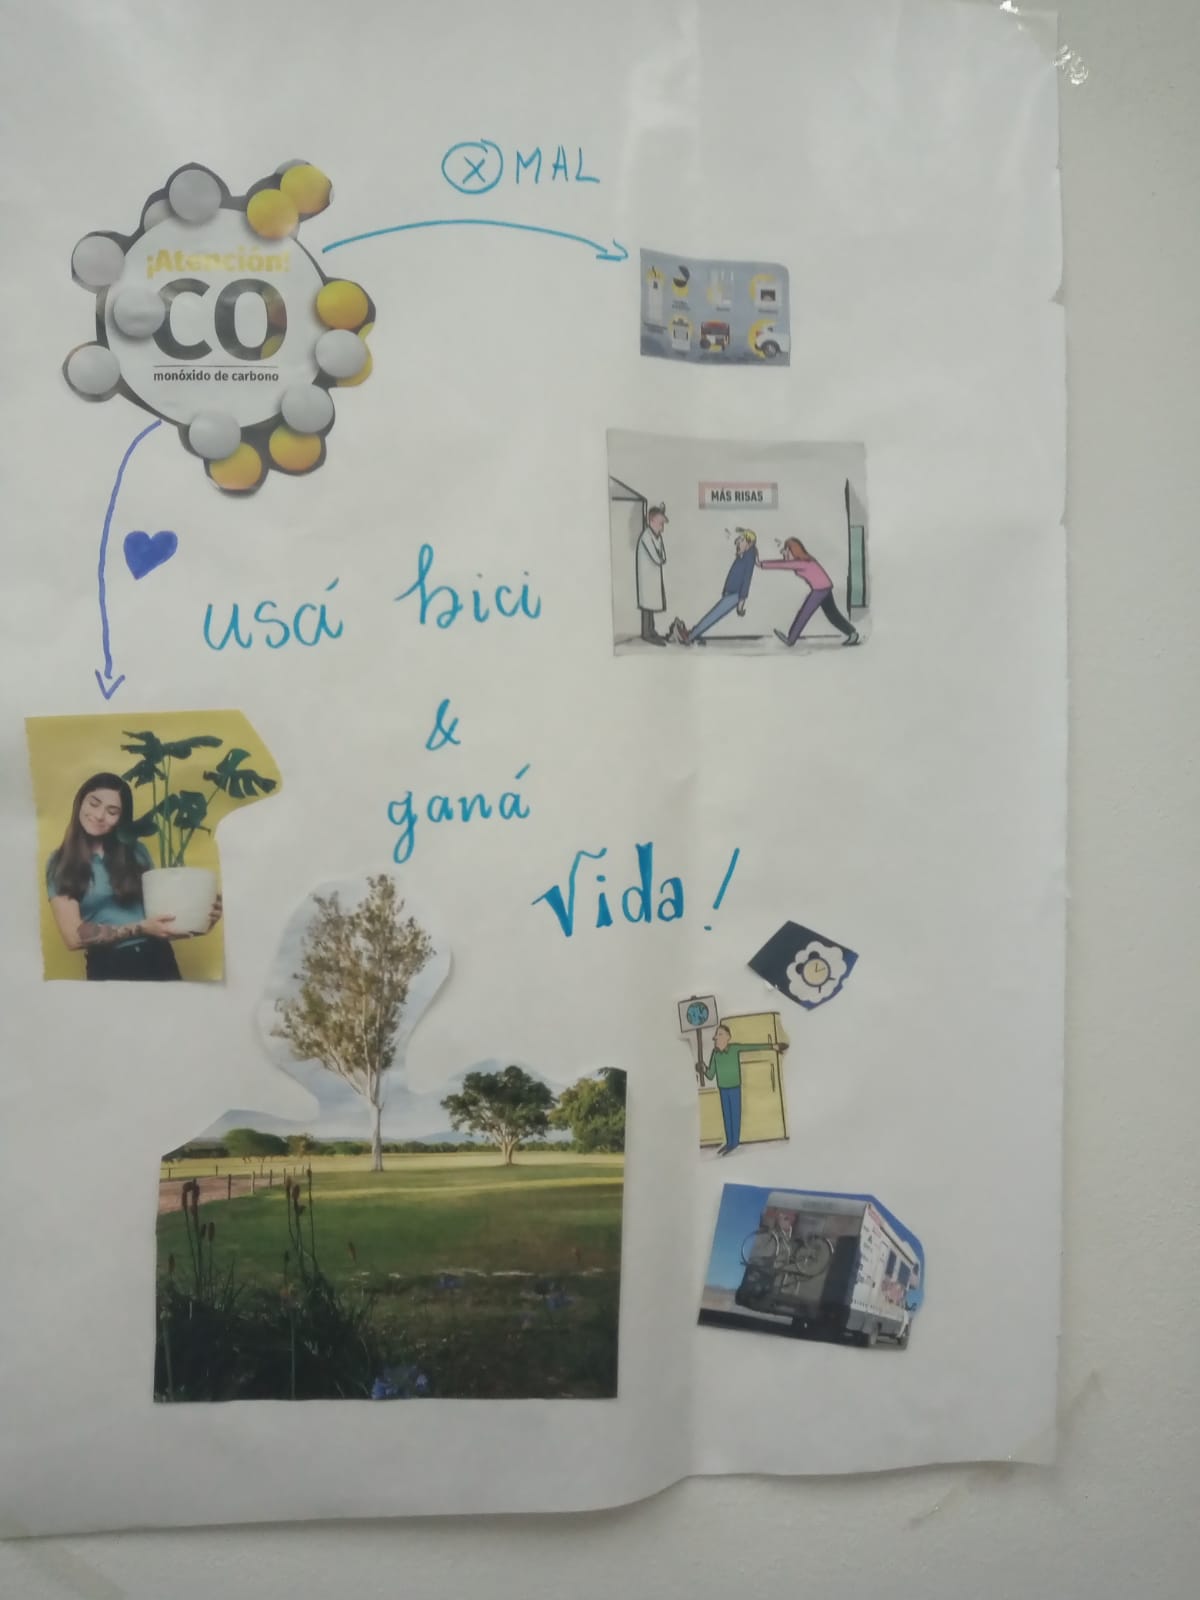 ⓧ MAL
¡Atención!
CO
monóxido de carbono
MÁS RISAS
usá bici
&
ganá
Vida!